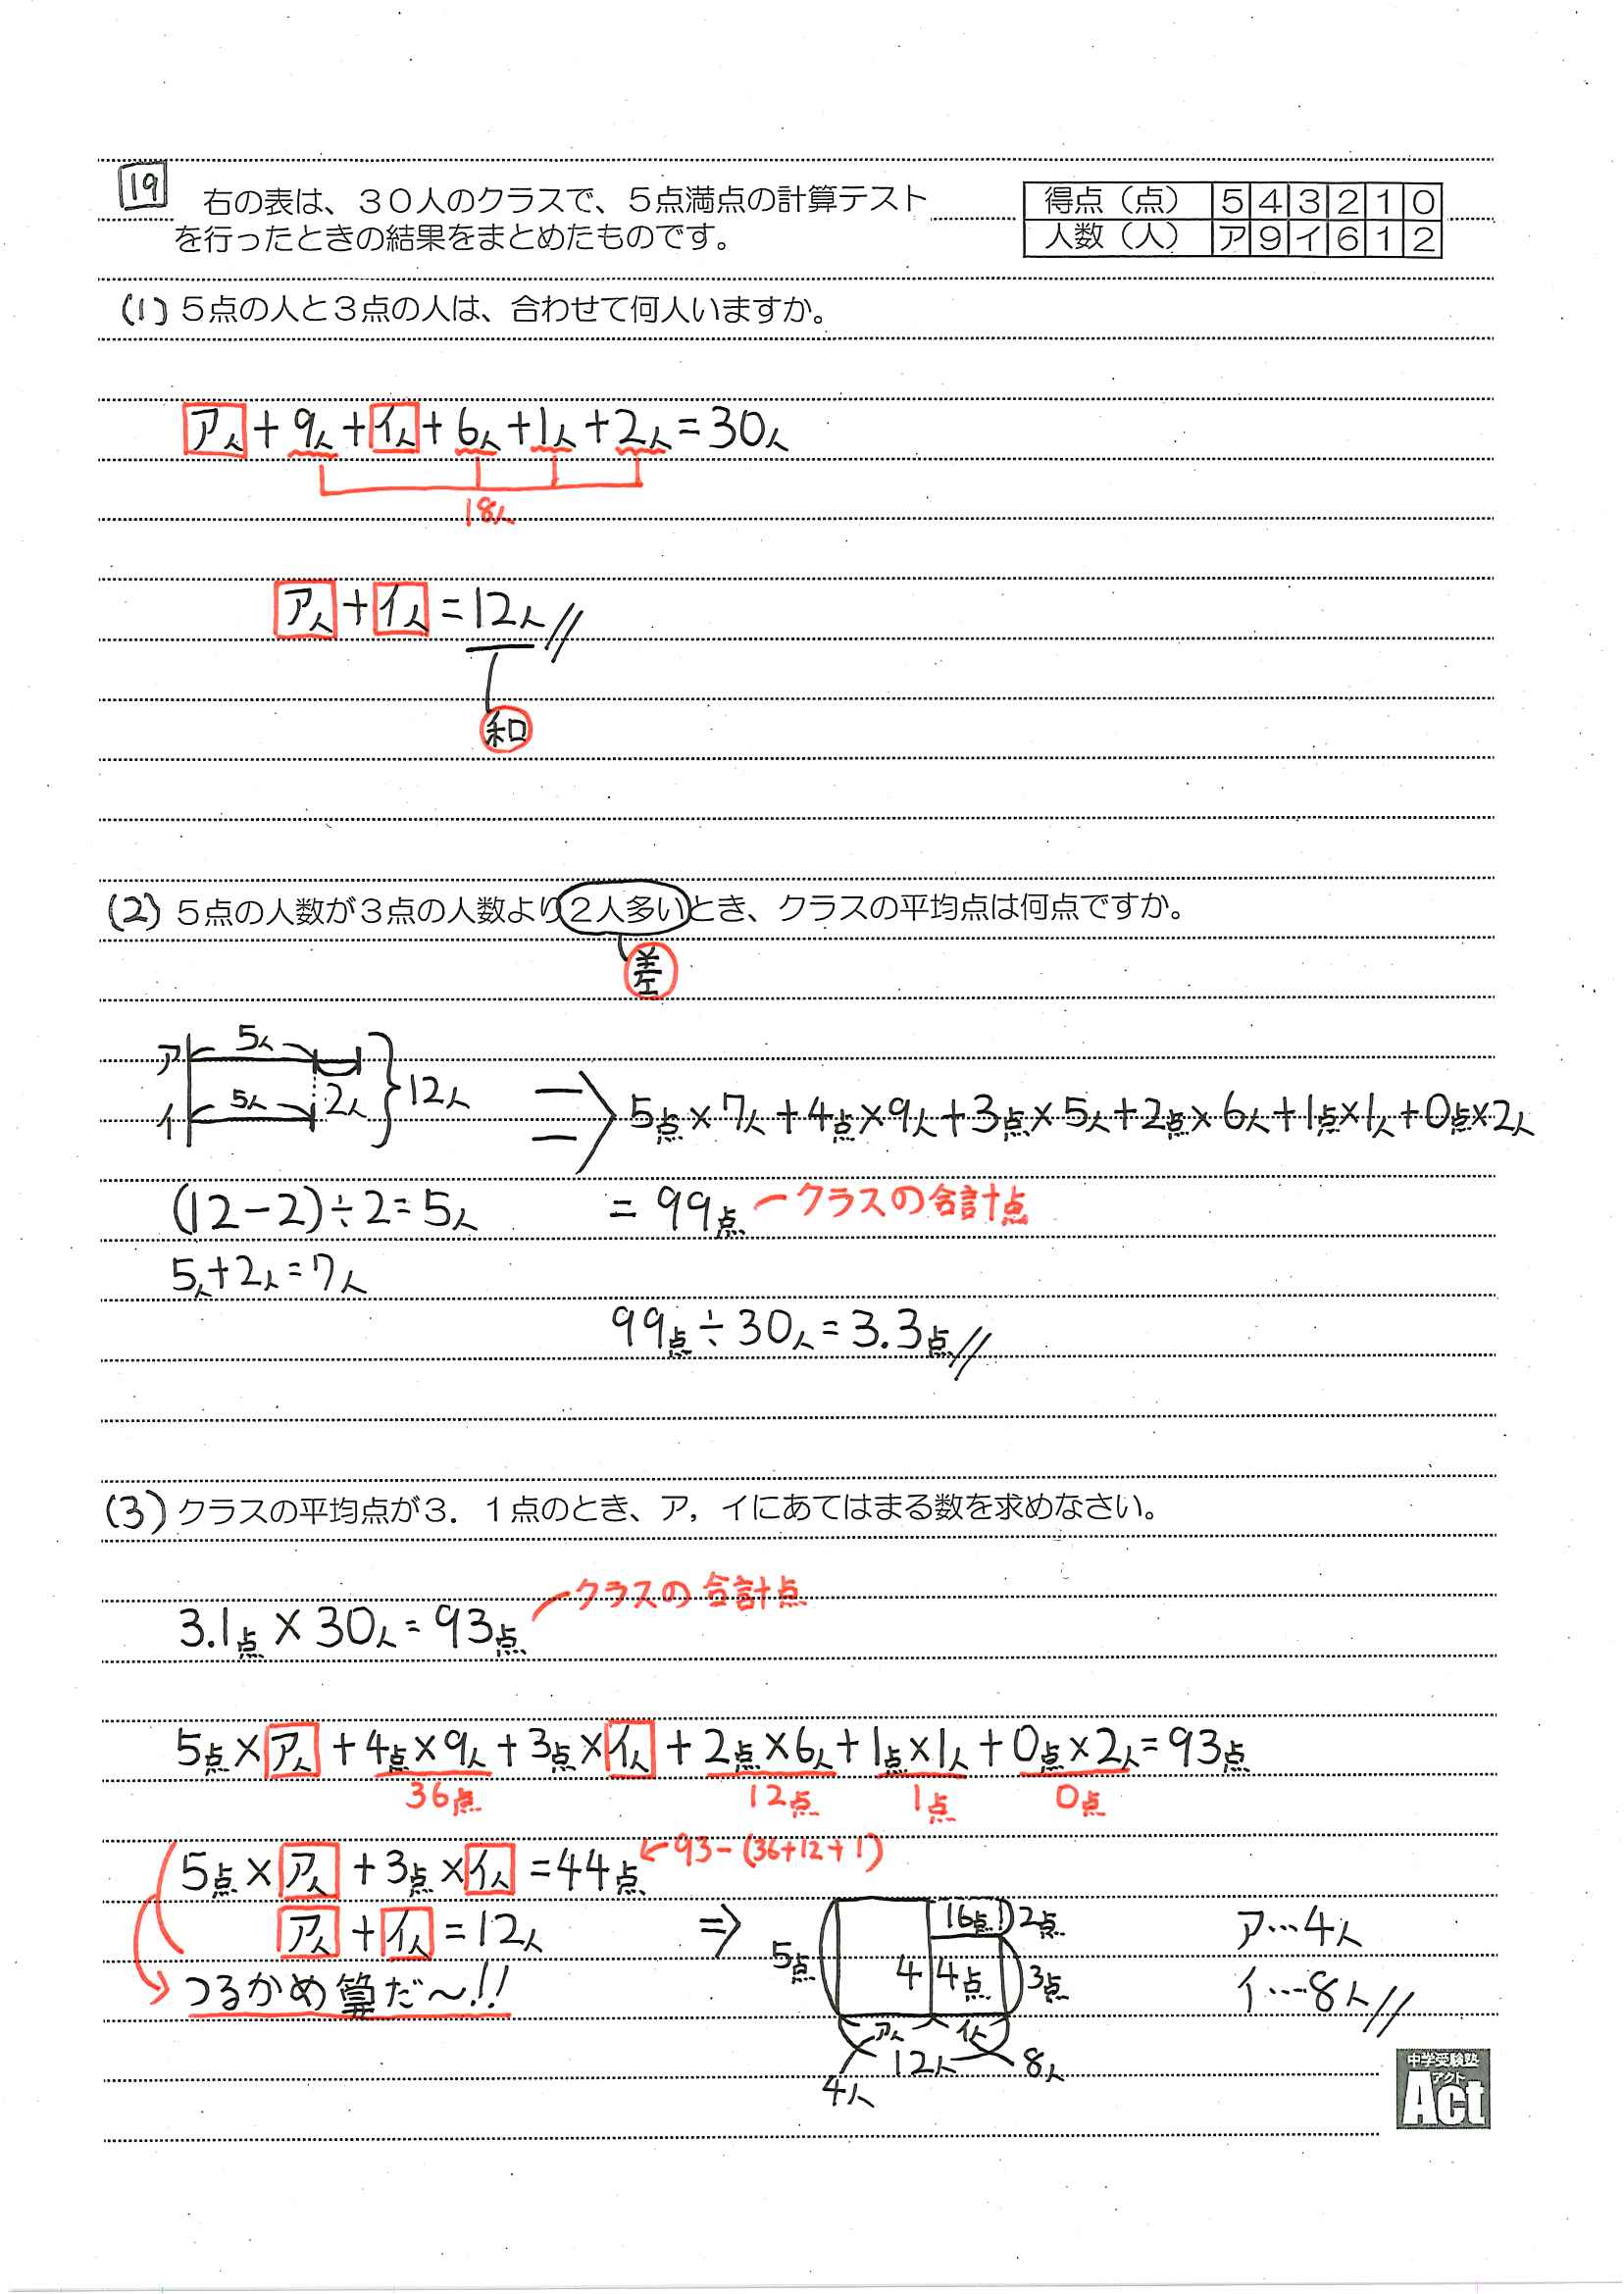 19
右の表は、30人のクラスで、5点満点の計算テスト
を行ったときの結果をまとめたものです。
得点（点） 5 4 3 2 1 0
人数（人） ア 9 イ 6 1 2
(1) 5点の人と3点の人は、合わせて何人いますか。
ア人+9人+イ人+6人+1人+2人=30人
18人
ア人+イ人=12人
和
(2) 5点の人数が3点の人数より2人多いとき、クラスの平均点は何点ですか。
差
ア 5人
イ 5人 2人 12人
⇒ 5点×7人+4点×9人+3点×5人+2点×6人+1点×1人+0点×2人
(12-2)÷2=5人
=99点 クラスの合計点
5人+2人=7人
99点÷30人=3.3点
(3) クラスの平均点が3．1点のとき、ア，イにあてはまる数を求めなさい。
クラスの合計点
3.1点×30人=93点
5点×ア人+4点×9人+3点×イ人+2点×6人+1点×1人+0点×2人=93点
36点 12点 1点 0点
5点×ア人+3点×イ人=44点 ←93-(36+12+1)
ア人+イ人=12人
つるかめ算だ〜!!
⇒
16点 2点
5点 44点 3点
ア人 イ人
12人
4人 8人
ア…4人
イ…8人
中学受験塾
アクト
Act